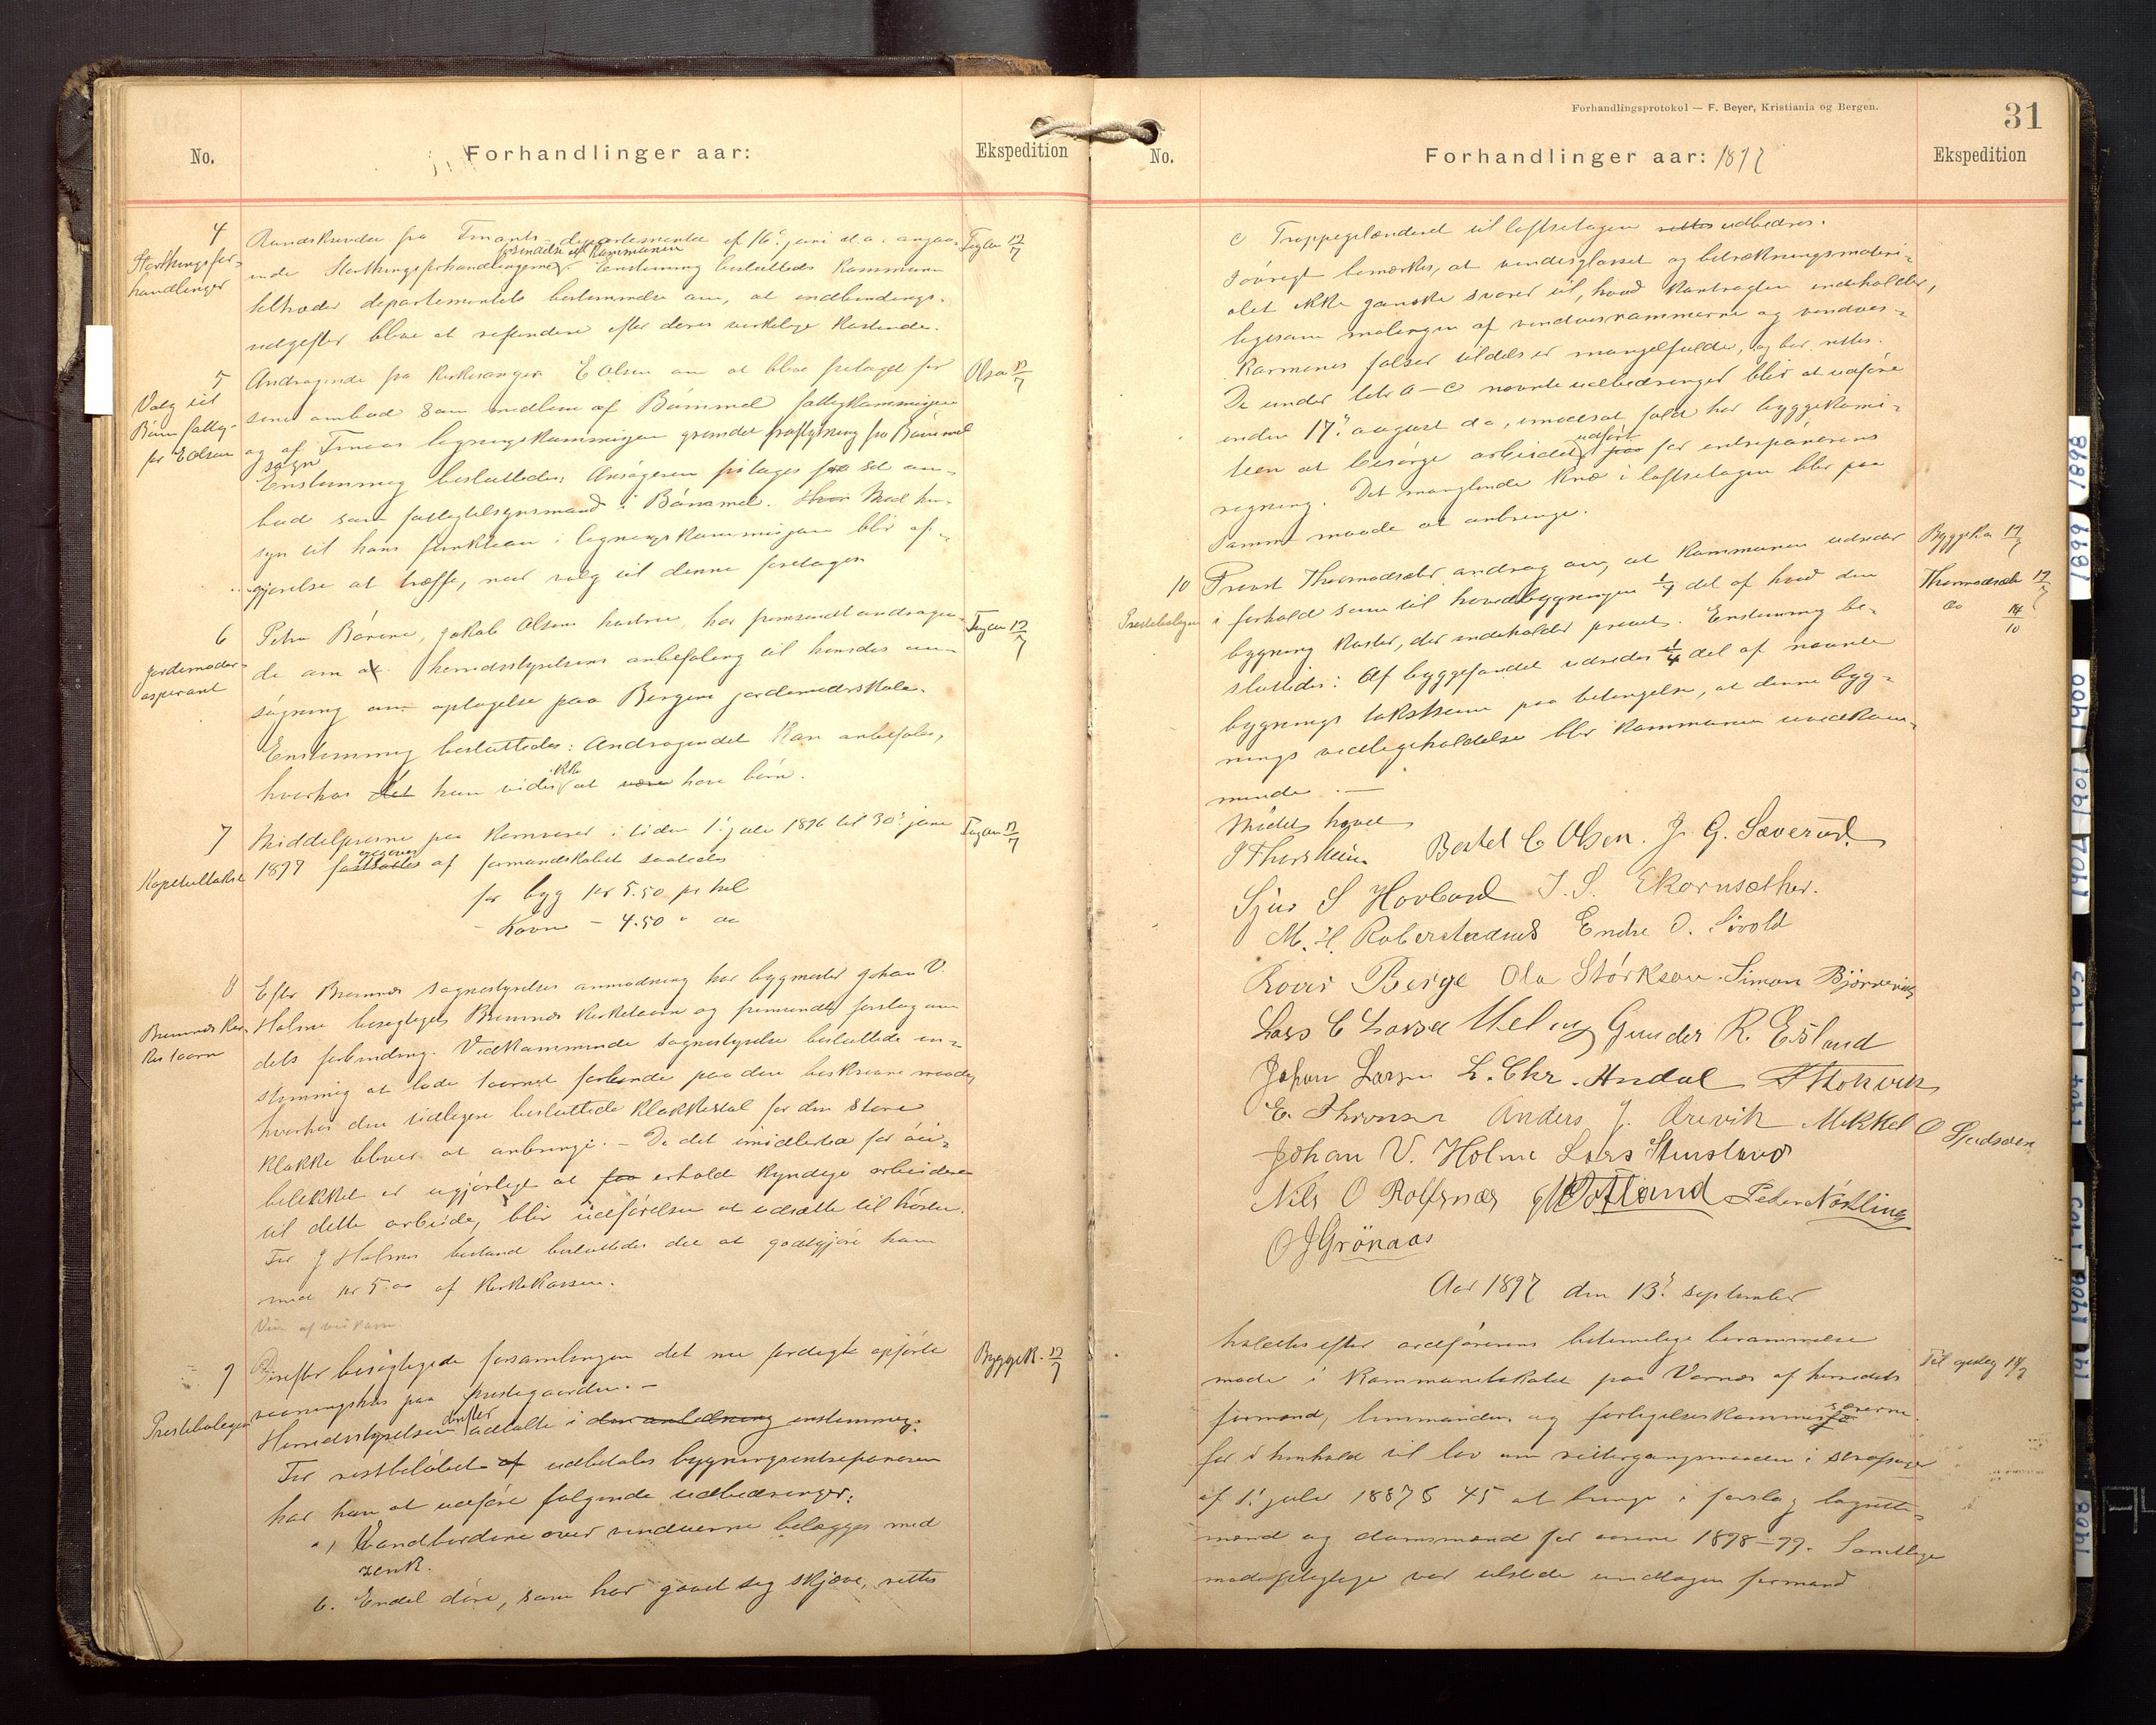 No.
Forhandlinger aar:
Ekspedition
4
Storthingsfor-
handlinger
Rundskrivelse fra Finants-departementet af 16de juni d.a. angaa-
ende Storthingsforhandlingerne. Enstemmig besluttedes Kommunen
tiltræder departementets bestemmelse om, at indbindings-
udgifter blive at refundere efter deres virkelige kostende.
5
Valg til
for E Olsen
Andragende fra kirkesanger E Olsen om at blive fritaget for
sine ombud som medlem af Bömmel fattigkommission
og af Finaas ligningskommission grundet fraflytning fra Bömmel
sogn
Enstemmig besluttedes: Ansögeren fritages for sit om-
bud som fattigtilsynsmand i Bömmel. Hvor Med hen-
syn til hans funktion i ligningskommissjonen blir af-
gjörelse at træffe, naar valg til denne foretages
Olsen 17/7
6
Jordemoder-
aspirant
Petra Börene, Jakob Olsens hustru, har fremsendt andragen-
de om herredsstyrelsens anbefaling til hendes an-
sögning om optagelse paa Bergens jordemorskole.
Enstemmig besluttedes: Andragendet kan anbefales,
hvorhos det hun vides ikke at være have börn.
7
Kapitelstakst
Middelpriserne paa kornvarer i tiden 1. juli 1896 til 30. juni
1897 fastsattes opgives af formandskabet saaledes
for byg kr 5.50 pr hel
- Havre - 4.50 " do
8
Bremnes kir-
ketaarn
Efter Bremnes sognestyrelses anmodning har bygmester Johan V.
Holme besigtiget Bremnes kirketaarn og fremsendt forslag om
dets forbinding. Vedkommende sognestyrelse besluttede en-
stemmig at lade taarnet forbinde paa den beskrevne maade,
hvorhos den tidligere besluttede klokkestol for den store
klokke bliver at anbringe. — Da det imidlertid for öie-
blikket er ugjörligt at faa erholde kyndige arbeidere
til dette arbeide, blir udförelsen at udsætte til hösten.
For J Holmes bistand besluttedes det at godtgjöre ham
med kr 5.00 af kirkekassen.
9
Præsteboligen
Derefter besigtigede forsamlingen det nu færdigt opförte
vaaningshus paa prestegaarden. —
Herredsstyrelsen derefter udtalte i den anledning enstemmig:
För restbelöbet af udbetales bygningsentreprenören
har han at udföre fölgende udbedringer:
a) Vandbordene over vinduerne belægges med
zink.
b. Endel döre, som har gaaet sig skjæve, rettes
Byggek. 17/7
Forhandlingsprotokol — F. Beyer, Kristiania og Bergen.
31
No.
Forhandlinger aar: 1897
Ekspedition
c Trappegelænderet til loftsetagen rettes udbedres.
Iövrigt bemærkes, at vinduesglasset og beklædningsmateri-
alet ikke ganske svarer til, hvad kontrakten indeholder,
ligesom malingen af vinduesrammerne og vindues-
karmenes falser tildels er mangelfulde, og bör rettes.
De under litr a—c nævnte udbedringer blir at udföre
inden 17. august d.a., imodsat fald har byggekomi-
teen at besörge arbeidet udfört paa for entreprenörens
regning. Det manglende knæ i loftsetagen blir paa
samme maade at anbringe.
10
Præsteboligen
Provst Thormodsæter androg om, at kommunen udreder
i forhold som til hovedbygningen 1/4 del af hvad den
bygning koster, der indeholder privet. Enstemmig be-
sluttedes: Af byggefondet udredes 1/4 del af nævnte
bygnings takstsum paa betingelse, at denne byg-
nings vedligeholdelse blir kommunen uvedkom-
mende. —
Mödet hævet
Byggeko 17/7
Thormodsæter 17/7
do 14/10
J Thorsheim Bertel C Olsen. J. G. Sæveröd.
Sjur S Hovland I. S. Ekornsæther.
M. H. Roberstadnes Endre O. Sivold
Roar Berge Ola Störksen. Simon Björnevik
Lars C Larsen Meling Gunder R. Esland
Johan Larsen L. Chr. Andal J Stokvik
E. Thronsen Anders J. Örevik Mikkel O Sjursen
Johan V. Holme Lars Stensland
Nils O Rolfsnæs Totland Peder Nökling
O J Grönaas
Aar 1897 den 13de september
holdtes efter ordförerens betimelige berammelse
möde i kommunelokalet paa Varnæs af herredets
formænd, lensmanden og forligelseskommissærerne
for i henhold til lov om rettergangsmaaden i straffesager
af 1. juli 1887 § 45 at bringe i forslag lagrette-
mænd og domsmænd for aarene 1898—99. Samtlige
mödepligtige var tilstede undtagen formand
Til opslag 14/9
1898
1899
1900
1901
1902
1903
1904
1905
1906
1908